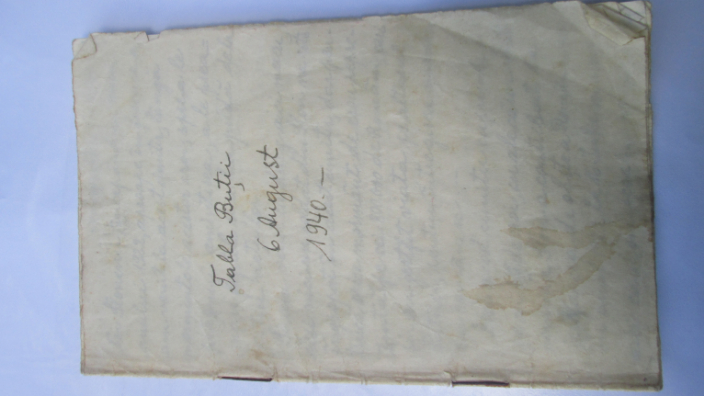 Tabla Buții
6 August
1940.—